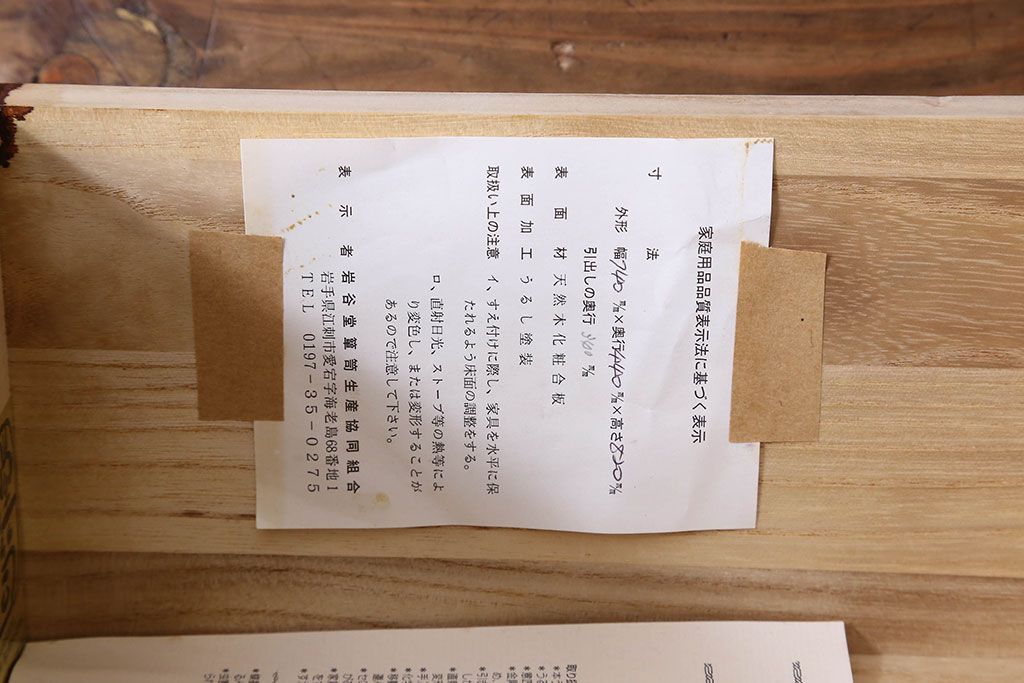 家庭用品品質表示法に基づく表示
寸法
外形 幅740㎜×奥行440㎜×高さ820㎜
引出しの奥行 360 ㎜
表面材 天然木化粧合板
表面加工 うるし塗装
取扱い上の注意 イ、すえ付けに際し、家具を水平に保
たれるよう床面の調整をする。
ロ、直射日光、ストーブ等の熱等によ
り変色し、または変形することが
あるので注意して下さい。
表示者 岩谷堂簞笥生産協同組合
岩手県江刺市愛宕字海老島68番地1
TEL 0197-35-0275